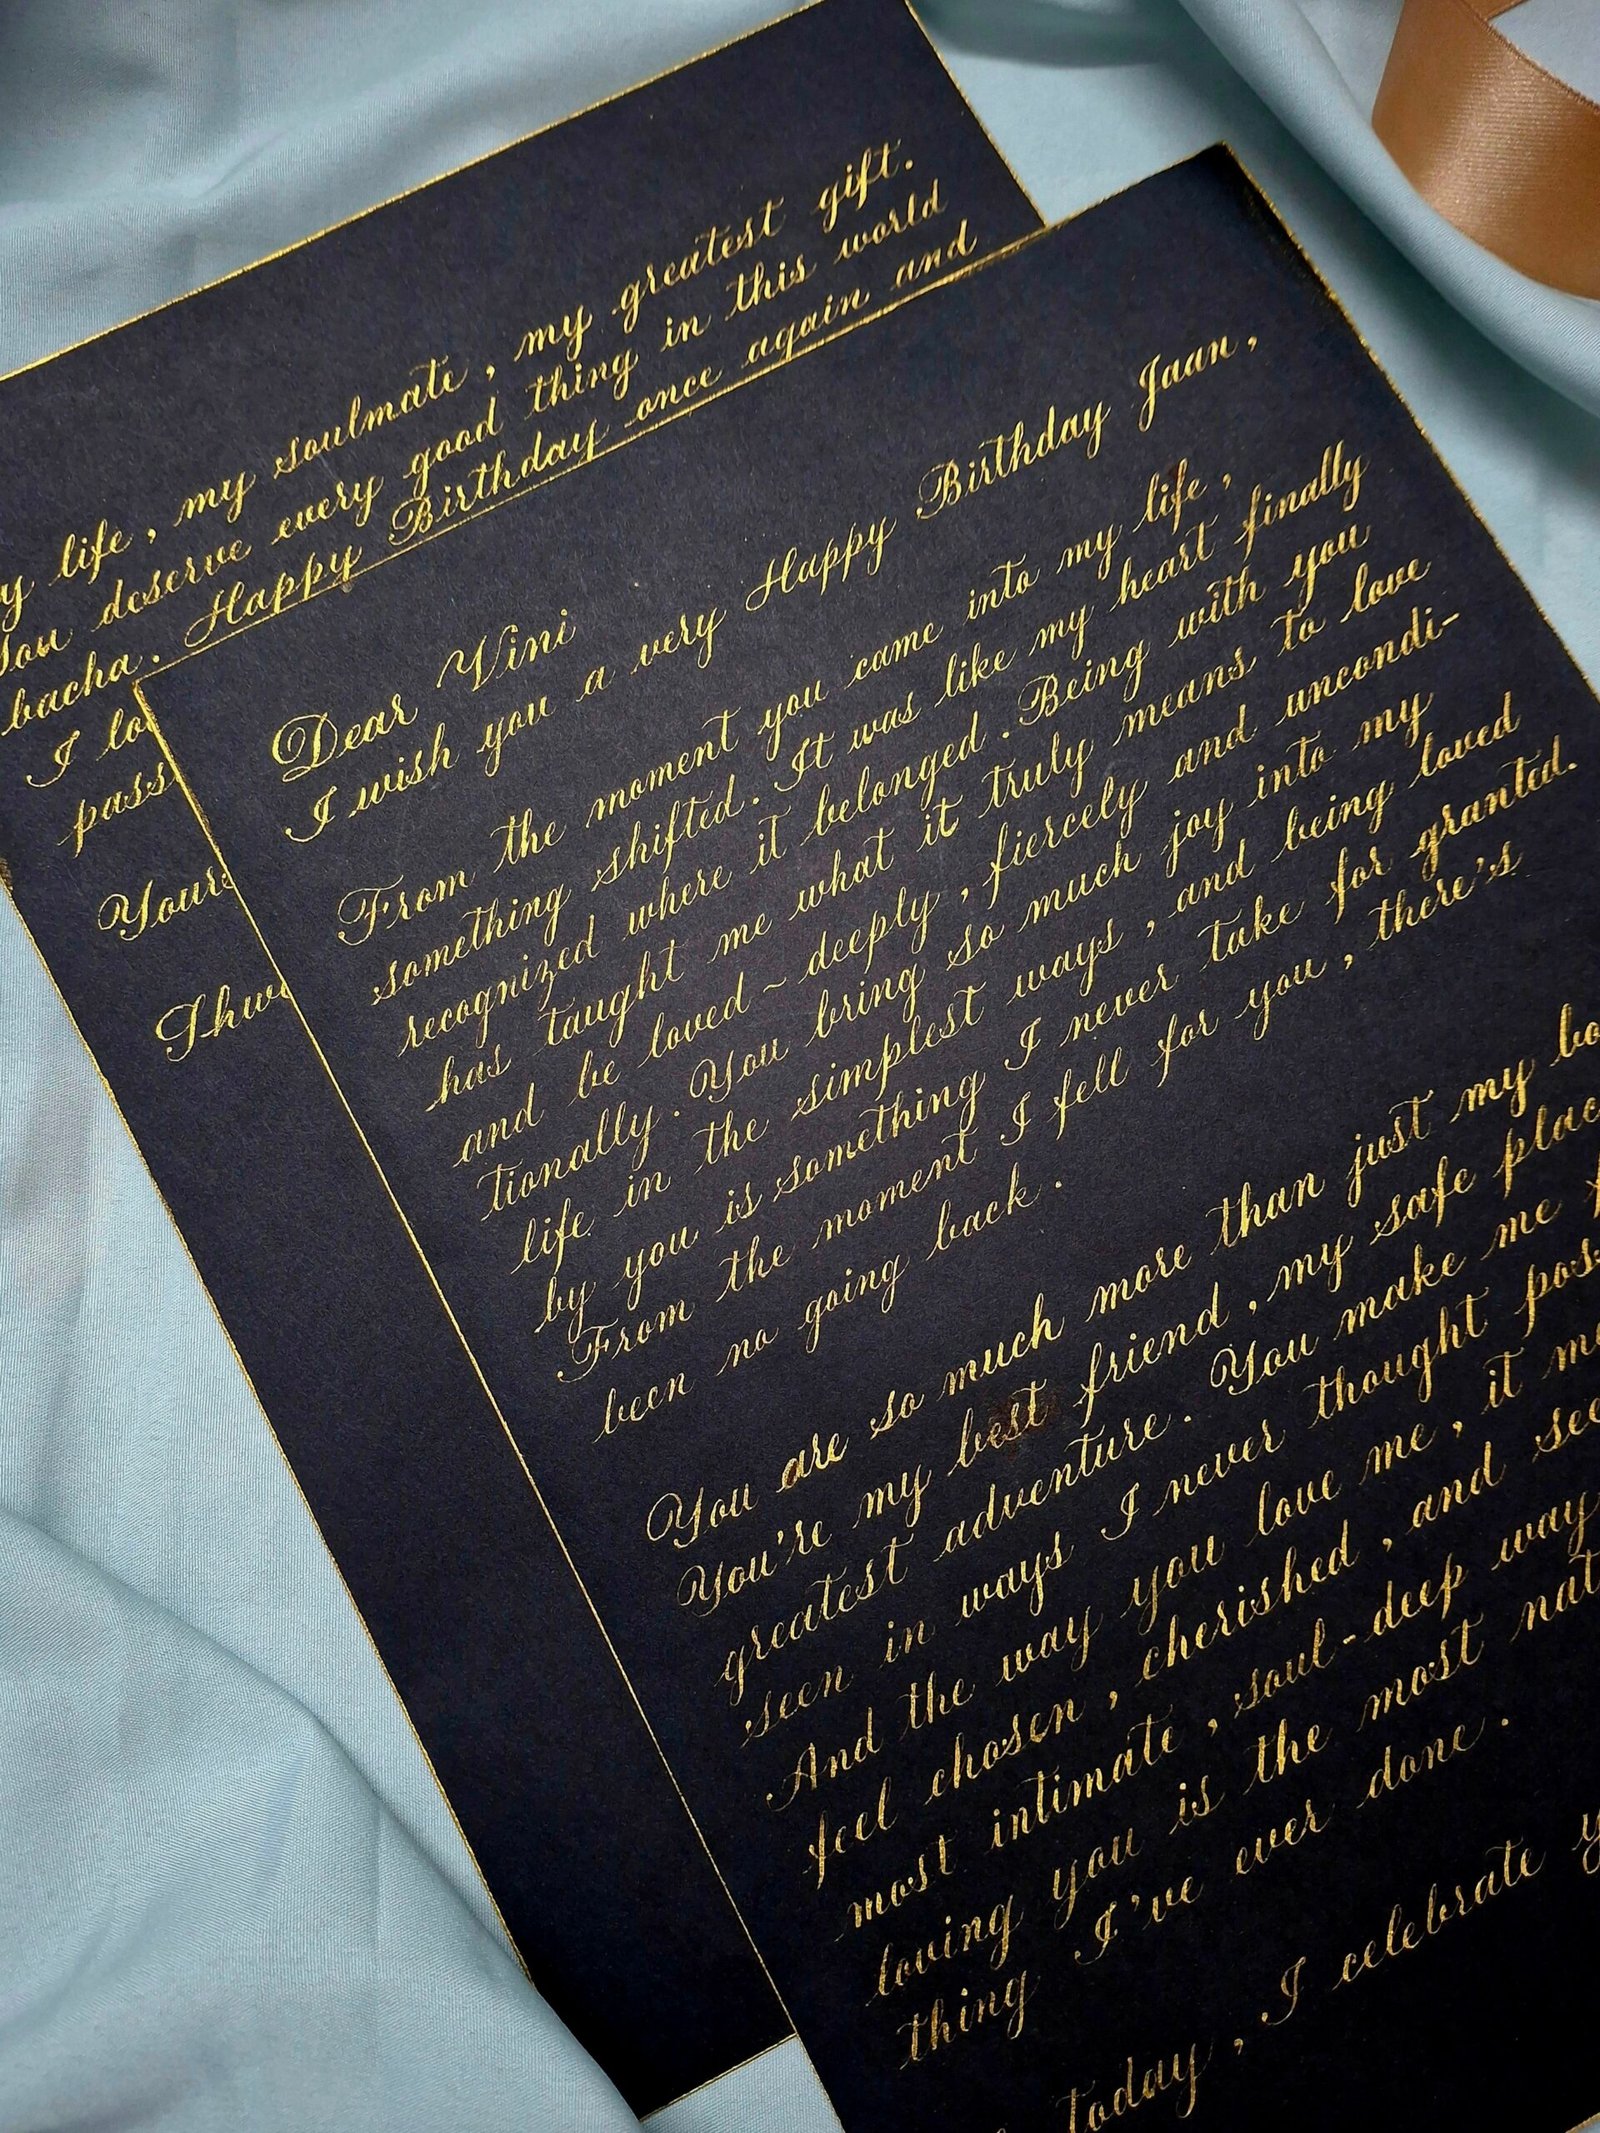 Dear Vini
I wish you a very Happy Birthday Jaan,
From the moment you came into my life,
something shifted. It was like my heart finally
recognized where it belonged. Being with you
has taught me what it truly means to love
and be loved ~ deeply, fiercely and uncondi-
tionally. You bring so much joy into my
life in the simplest ways, and being loved
by you is something I never take for granted.
From the moment I fell for you, there's
been no going back.
You are so much more than just my
You're my best friend, my safe
greatest adventure. You make me
seen in ways I never thought
And the way you love me, it
feel chosen, cherished, and
most intimate, soul-deep way
loving you is the most
thing I've ever done.
today, I celebrate
life, my soulmate, my greatest gift.
You deserve every good thing in this world
bacha. Happy Birthday once again and
I